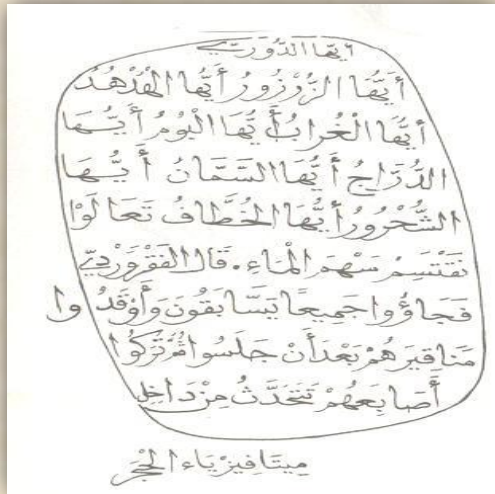 أيُّهَا الدُّورِيّ
أيُّهَا الزُّرْزُورُ أيُّهَا الْهُدْهُدُ
أيُّهَا الْغُرَابُ أيُّهَا الْبُومُ أيُّهَا
الدُّرَاجُ أيُّهَا السَّمَّانُ أيُّهَا
الشُّحْرُورُ أيُّهَا الخُطَّافُ تَعَالَوْا
نَقْتَسِمْ سَهْمَ الْمَاءِ. قَالَ الفَقْرَوَرْدِيّ
فَجَاؤُوا جَمِيعًا يَتَسَابَقُونَ وَأَوْقَدُوا
مَنَاقِيرَهُمْ بَعْدَ أَنْ جَلَسُوا ثُمَّ تَرَكُوا
أَصَابِعَهُمْ تَتَحَدَّثُ مِنْ دَاخِلِ
مِيتَافِيزْيَاءِ الْحَجَرِ